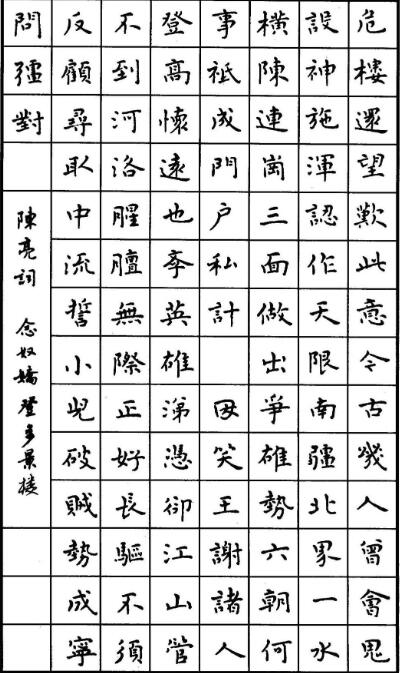 危樓還望歎此意今古幾人曾會鬼
設神施渾認作天限南疆北界一水
橫陳連崗三面做出爭雄勢六朝何
事祇成門户私計 因笑王謝諸人
登高懷遠也學英雄涕憑卻江山管
不到河洛腥膻無際正好長驅不須
反顧尋取中流誓小兒破賊勢成寧
問彊對
陳亮詞 念奴嬌登多景楼